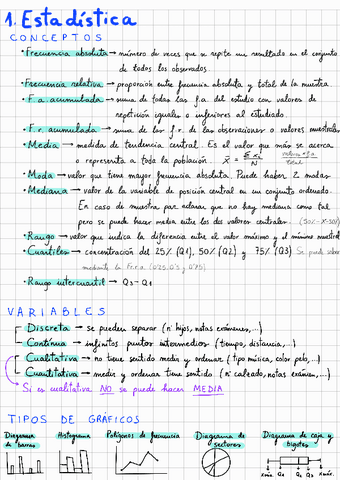 1. Estadística
CONCEPTOS
• Frecuencia absoluta → número de veces que se repite un resultado en el conjunto
de todos los observados.
• Frecuencia relativa → proporción entre frecuencia absoluta y total de la muestra.
• F. a. acumulada → suma de todas las f.a. del estudio con valores de
repetición iguales o inferiores al estudiado.
• F. r. acumulada → suma de las f.r. de las observaciones o valores muestrales
• Media → medida de tendencia central. Es el valor que más se acerca
o representa a toda la población. x̄ = Σxi / N
• Moda → valor que tiene mayor frecuencia absoluta. Puede haber 2 modas.
• Mediana → valor de la variable de posición central en un conjunto ordenado.
En caso de muestra par aclarar que no hay mediana como tal
pero se puede hacer media entre los dos valores centrales. (50%-X-50%)
• Rango → valor que indica la diferencia entre el valor máximo y el mínimo muestral
• Cuartiles → concentración del 25% (Q1), 50% (Q2) y 75% (Q3) Se puede saber
mediante la F.r.a. (0'25, 0'5 y 0'75)
• Rango intercuartil → Q3 - Q1
VARIABLES
Discreta → se pueden separar (nº hijos, notas exámenes,...)
Continua → infinitos puntos intermedios (tiempo, distancia,...)
Cualitativa → no tiene sentido medir y ordenar (tipo música, color pelo,...)
Cuantitativa → medir y ordenar tiene sentido (nº calzado, notas examen,...)
Si es cualitativa NO se puede hacer MEDIA
TIPOS DE GRÁFICOS
Diagrama de barras
Histograma
Polígonos de frecuencia
Diagrama de sectores
Diagrama de caja y bigotes
xmín. Q1 Q2 Q3 xmáx.